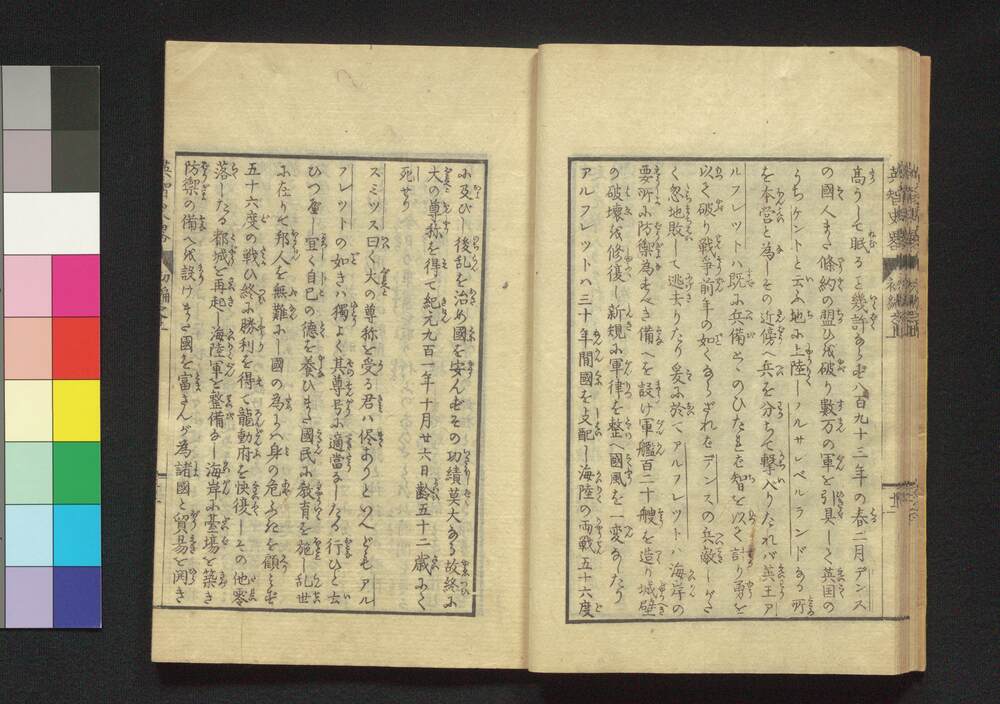 高うして眠ると幾許ならず八百九十三年の春二月デンス
の國人また條約の盟ひを破り數万の軍を引具して英国の
うちケントと云ふ地に上陸しノルサレベルランドある所
を本営と為しその近傍へ兵を分ちて撃入りたれバ英王ア
ルフレットハ既に兵備
以て破り戦争前年の如くならざれをデンスの兵敵しがた
く忽地敗して逃去りたり爰に於てアルフレットハ海岸の
要所に防禦為すべき備へを設け軍艦百二十艘を造り城壁
の破壊を修復し新規に軍律を整へ國風を一変なしたり
アルフレットハ三十年間國を支配し海陸の両戦五十六度
に及びし後乱を治め國を安んずその功績莫大なる故終に
大の尊称を得て紀元九百一年十月廿六日齢五十二歳にて
死せり
スミツス曰く大の尊称を受る君ハ侭ありといへどもアル
フレットの如きハ獨よく其尊号に適當なしたる行ひと云
ひつ宜く自己の德を養ひまた國民に教育を施し乱世
に在りて邦人を無難にし國の為にハ身の危ふきを顧みず
五十六度の戦ひ終に勝利を得て龍動府を快復しその他零
落したる都城を再起し海陸軍を整備なし海岸に臺場を築き
防禦の備へを設けまた國を富さんが為諸國と貿易を開き